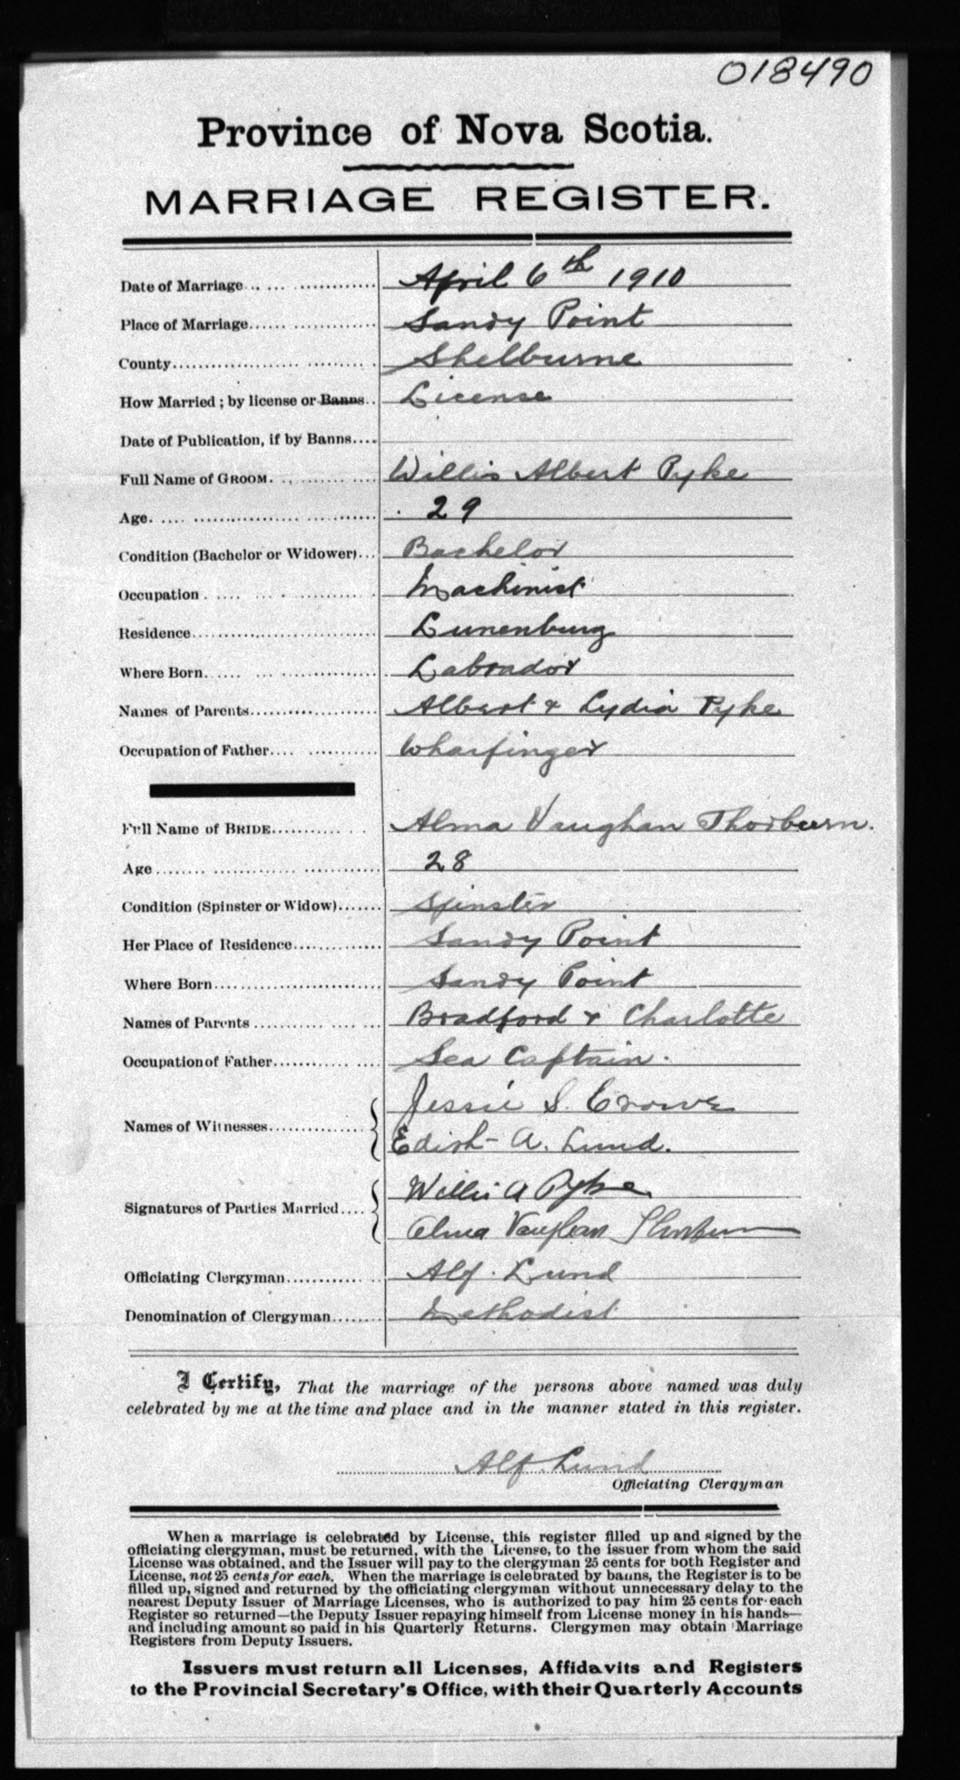 018490
Province of Nova Scotia.
MARRIAGE REGISTER.
Date of Marriage April 6th 1910
Place of Marriage Sandy Point
County Shelburne
How Married ; by license or Banns License
Date of Publication, if by Banns
Full Name of GROOM Willis Albert Pyke
Age 29
Condition (Bachelor or Widower) Bachelor
Occupation Machinist
Residence Lunenburg
Where Born Labrador
Names of Parents Albert & Lydia Pyke
Occupation of Father Wharfinger
Full Name of BRIDE Alma Vaughan Thorburn.
Age 28
Condition (Spinster or Widow) Spinster
Her Place of Residence Sandy Point
Where Born Sandy Point
Names of Parents Bradford & Charlotte
Occupation of Father Sea Captain.
Names of Witnesses Jessie S. Crowe
Edith A. Lund.
Signatures of Parties Married Willis A Pyke
Alma Vaughan Thorburn
Officiating Clergyman Alf. Lund
Denomination of Clergyman Methodist
I Certify, That the marriage of the persons above named was duly
celebrated by me at the time and place and in the manner stated in this register.
Alf. Lund
Officiating Clergyman
When a marriage is celebrated by License, this register filled up and signed by the
officiating clergyman, must be returned, with the License, to the issuer from whom the said
License was obtained, and the Issuer will pay to the clergyman 25 cents for both Register and
License, not 25 cents for each. When the marriage is celebrated by banns, the Register is to be
filled up, signed and returned by the officiating clergyman without unnecessary delay to the
nearest Deputy Issuer of Marriage Licenses, who is authorized to pay him 25 cents for each
Register so returned—the Deputy Issuer repaying himself from License money in his hands—
and including amount so paid in his Quarterly Returns. Clergymen may obtain Marriage
Registers from Deputy Issuers.
Issuers must return all Licenses, Affidavits and Registers
to the Provincial Secretary's Office, with their Quarterly Accounts